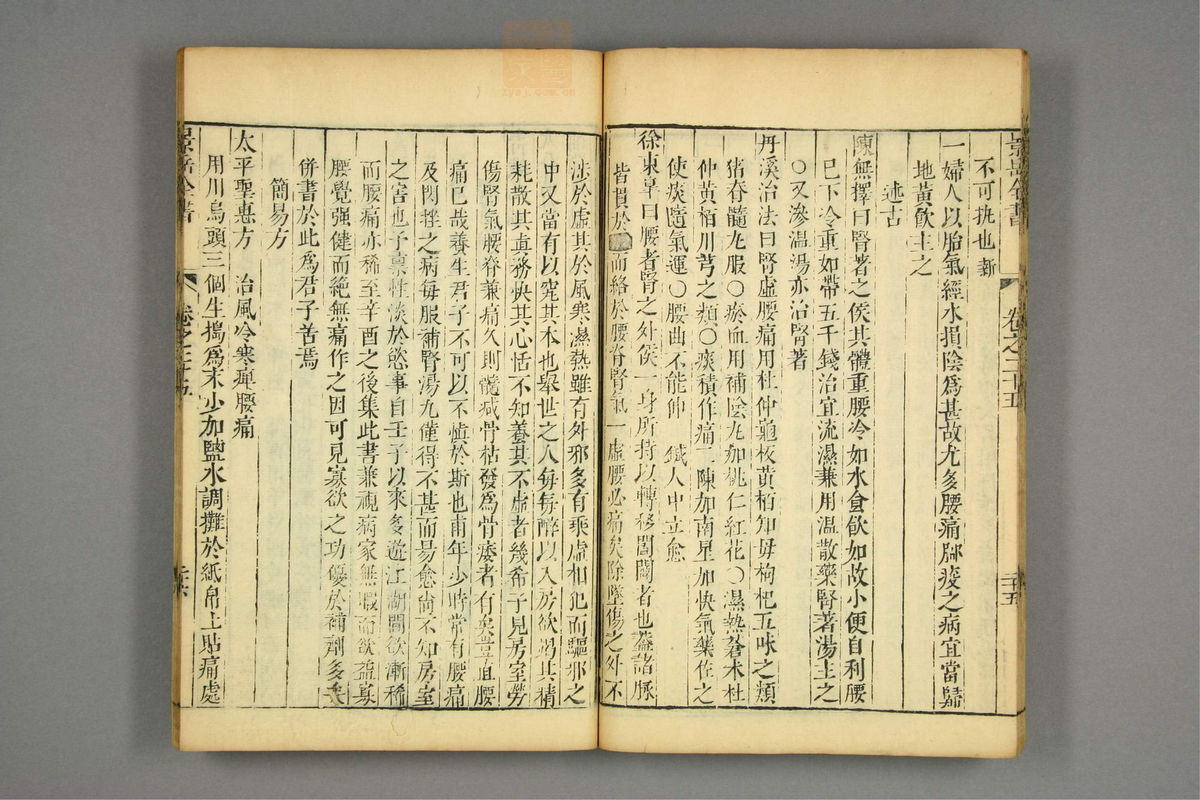 景岳全書 卷之二十五 二十五
不可執也 新
一婦人以胎氣經水損陰爲甚故尤多腰痛脚痠之病宜當歸
地黃飲主之
述古
陳無擇曰腎著之候其體重腰冷如水食飲如故小便自利腰
已下冷重如帶五千錢治宜流濕兼用溫散藥腎著湯主之
○又滲溫湯亦治腎著
丹溪治法曰腎虛腰痛用杜仲龜板黃栢知母枸杞五味之類
猪脊髓丸服○瘀血用補陰丸加桃仁紅花○濕熱蒼术杜
仲黃栢川芎之類○痰積作痛二陳加南星加快氣藥佐之
使痰隨氣運○腰曲不能伸 鍼人中立愈
徐東皐曰腰者腎之外候一身所恃以轉移闔闢者也蓋諸脉
皆損於而絡於腰脊腎氣一虛腰必痛矣除墜傷之外不
涉於虛其於風寒濕熱雖有外邪多有乘虛相犯而驅邪之
中又當有以究其本也舉世之人每每醉以入房欲竭其精
耗散其眞務快其心恬不知養其不虛者幾希予見房室勞
傷腎氣腰脊兼痛久則髓減骨枯發爲骨痿者有矣豈直腰
痛已哉養生君子不可以不慎於斯也甫年少時常有腰痛
及閃挫之病每服補腎湯丸僅得不甚而易愈尚不知房室
之害也予禀性淡於慾事自壬子以來多遊江湖間欲漸稀
而腰痛亦稀至辛酉之後集此書兼視病家無暇而欲益寡
腰覺强健而絶無痛作之因可見寡欲之功優於補劑多矣
併書於此爲君子苦焉
簡易方
太平聖惠方 治風冷寒痺腰痛
用川烏頭三個生搗爲末少加鹽水調攤於紙帛上貼痛處
景岳全書 卷之二十五 二十六